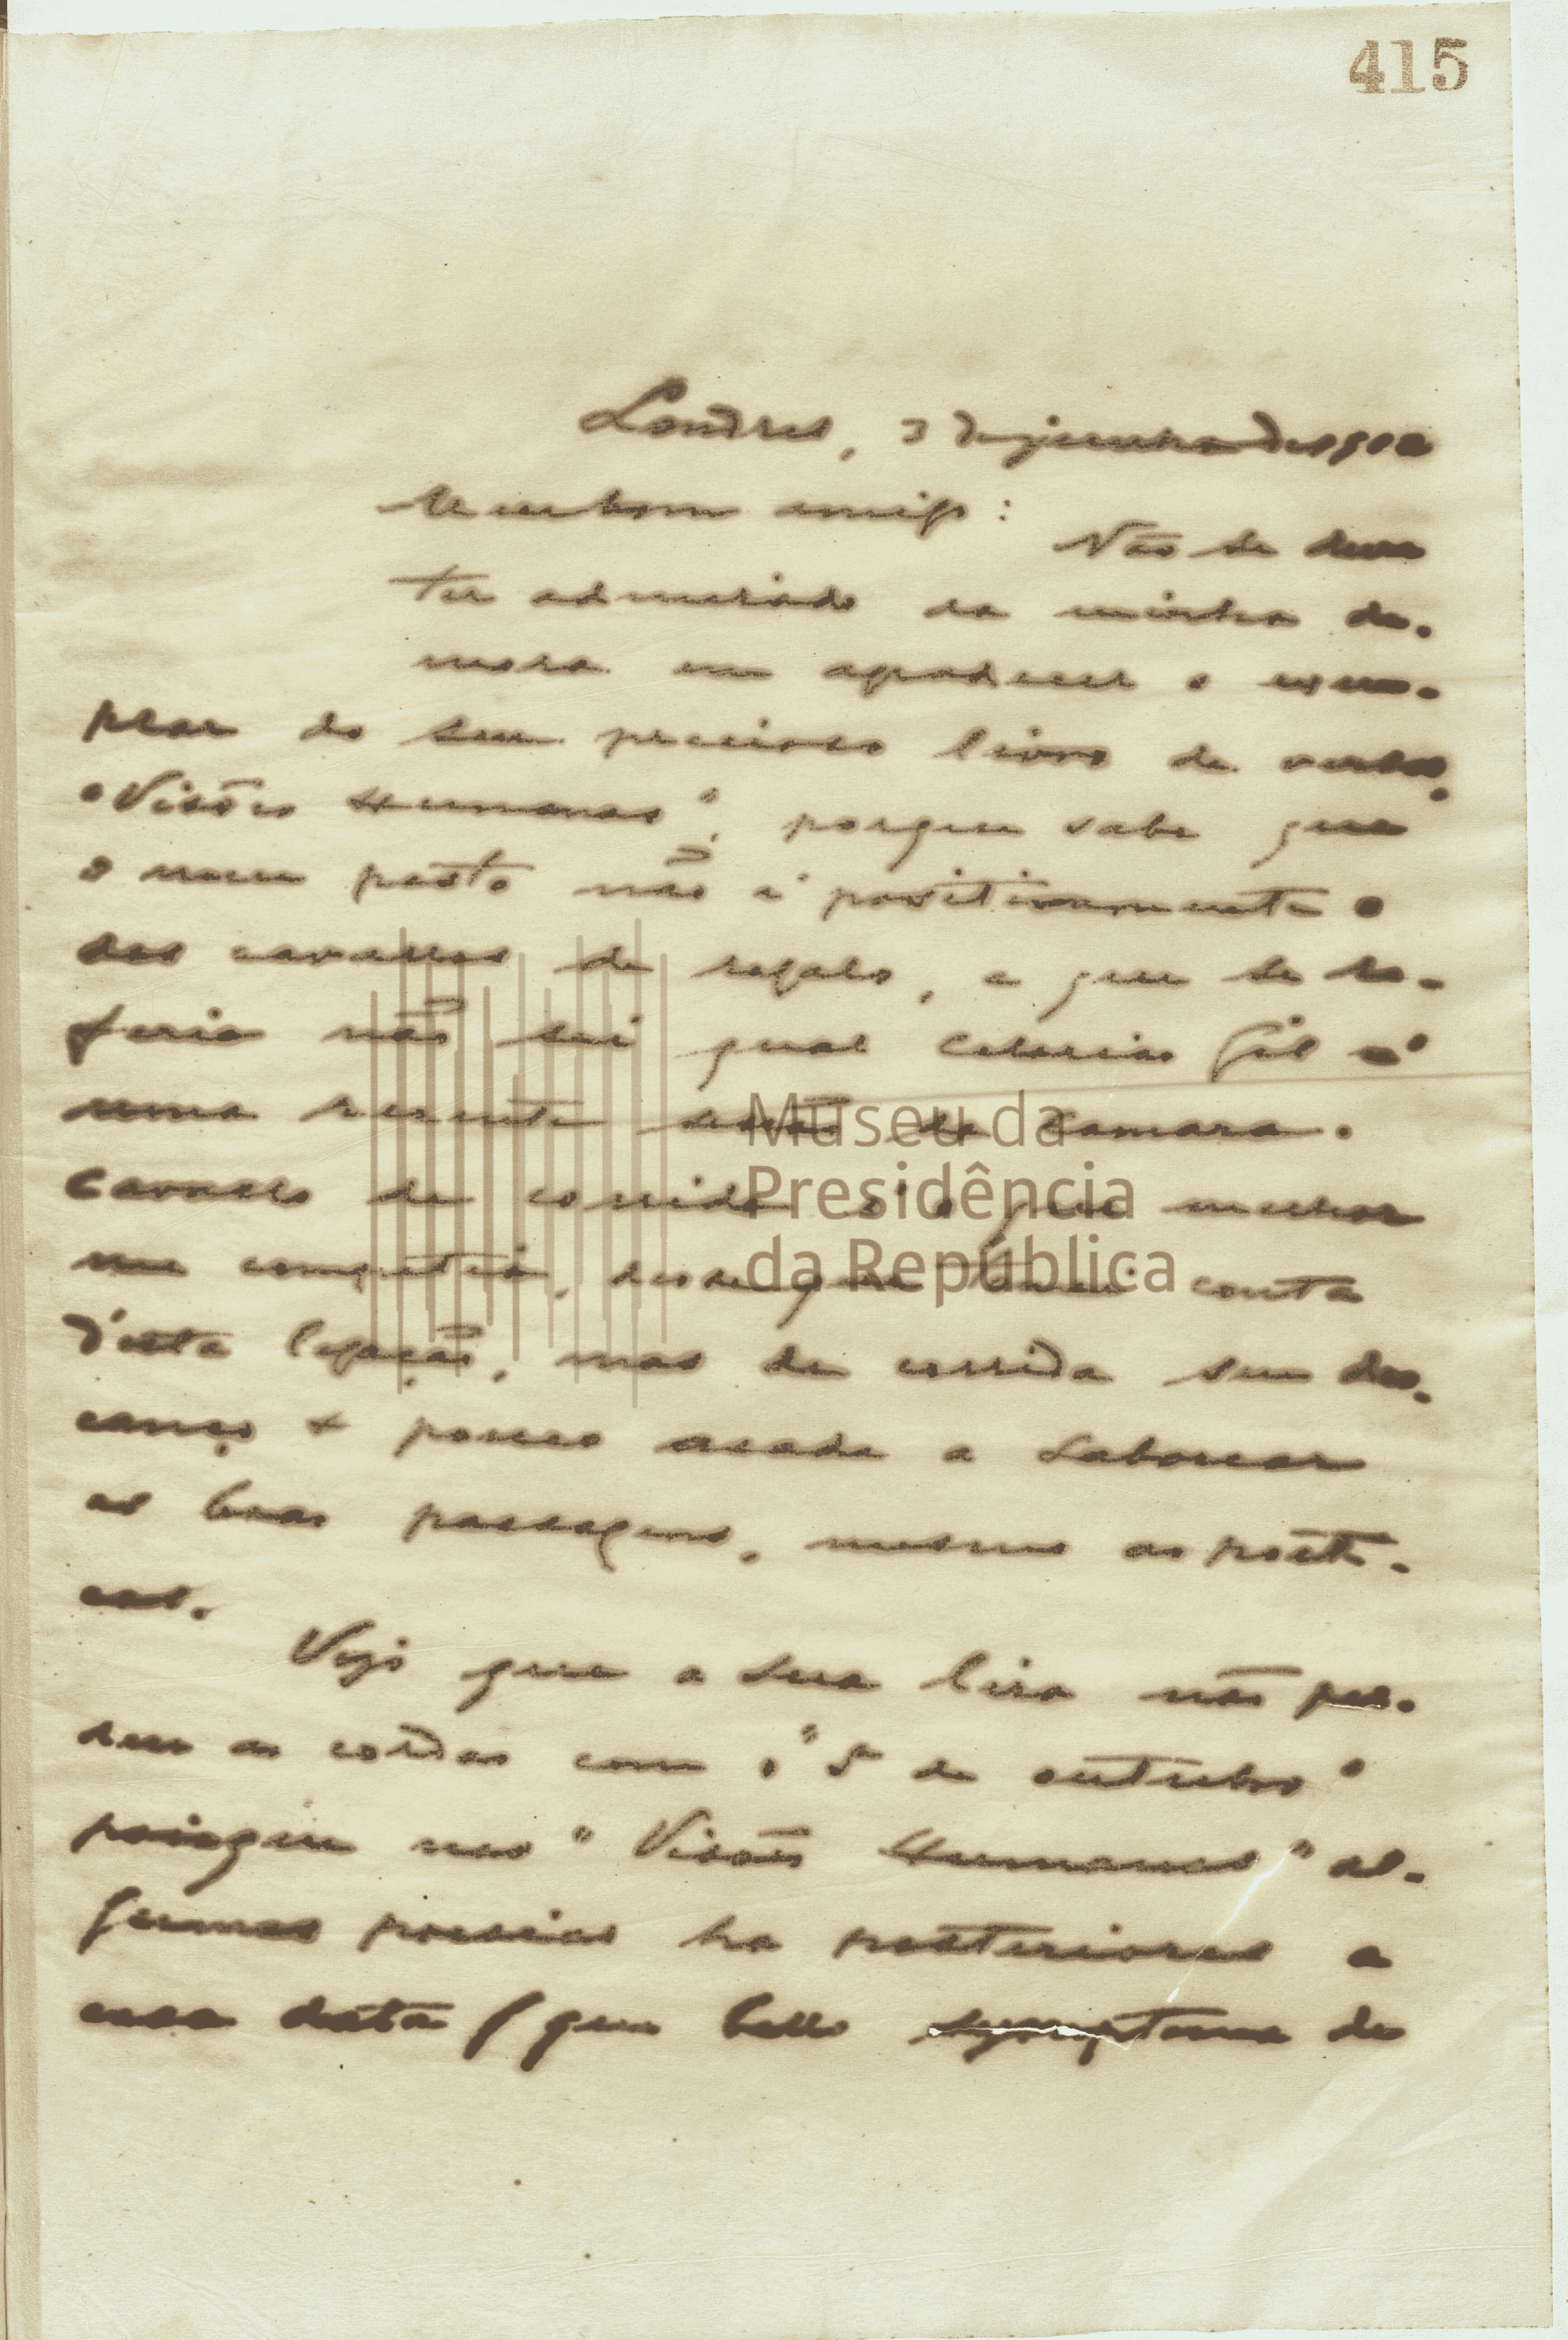 415
Londres, 3 de junho de 1912
Meu bom amigo:
Não se deve
ter admirado da minha de-
mora em agradecer o exem-
plar do seu precioso livro de versos,
"Visões Humanas", porque sabe que
o meu posto não é positivamente o
dos cavallos de regalo, a que se re-
feria não sei qual Celorico Gil
numa recente sessão da Camara.
Cavallo de corrida é o que melhor
me competia, desde que tomei conta
d'esta legação, mas de corrida sem des-
canço e pouco a saborear
as boas passagens, mesmo as poeti-
cas.
Vejo que a sua lira não per-
deu as cordas com o "5 de outubro"
poisque nas "Visões Humanas" al-
gumas poesias ha posteriores a
essa data (que bello symptoma de
Museu da
Presidência
da República